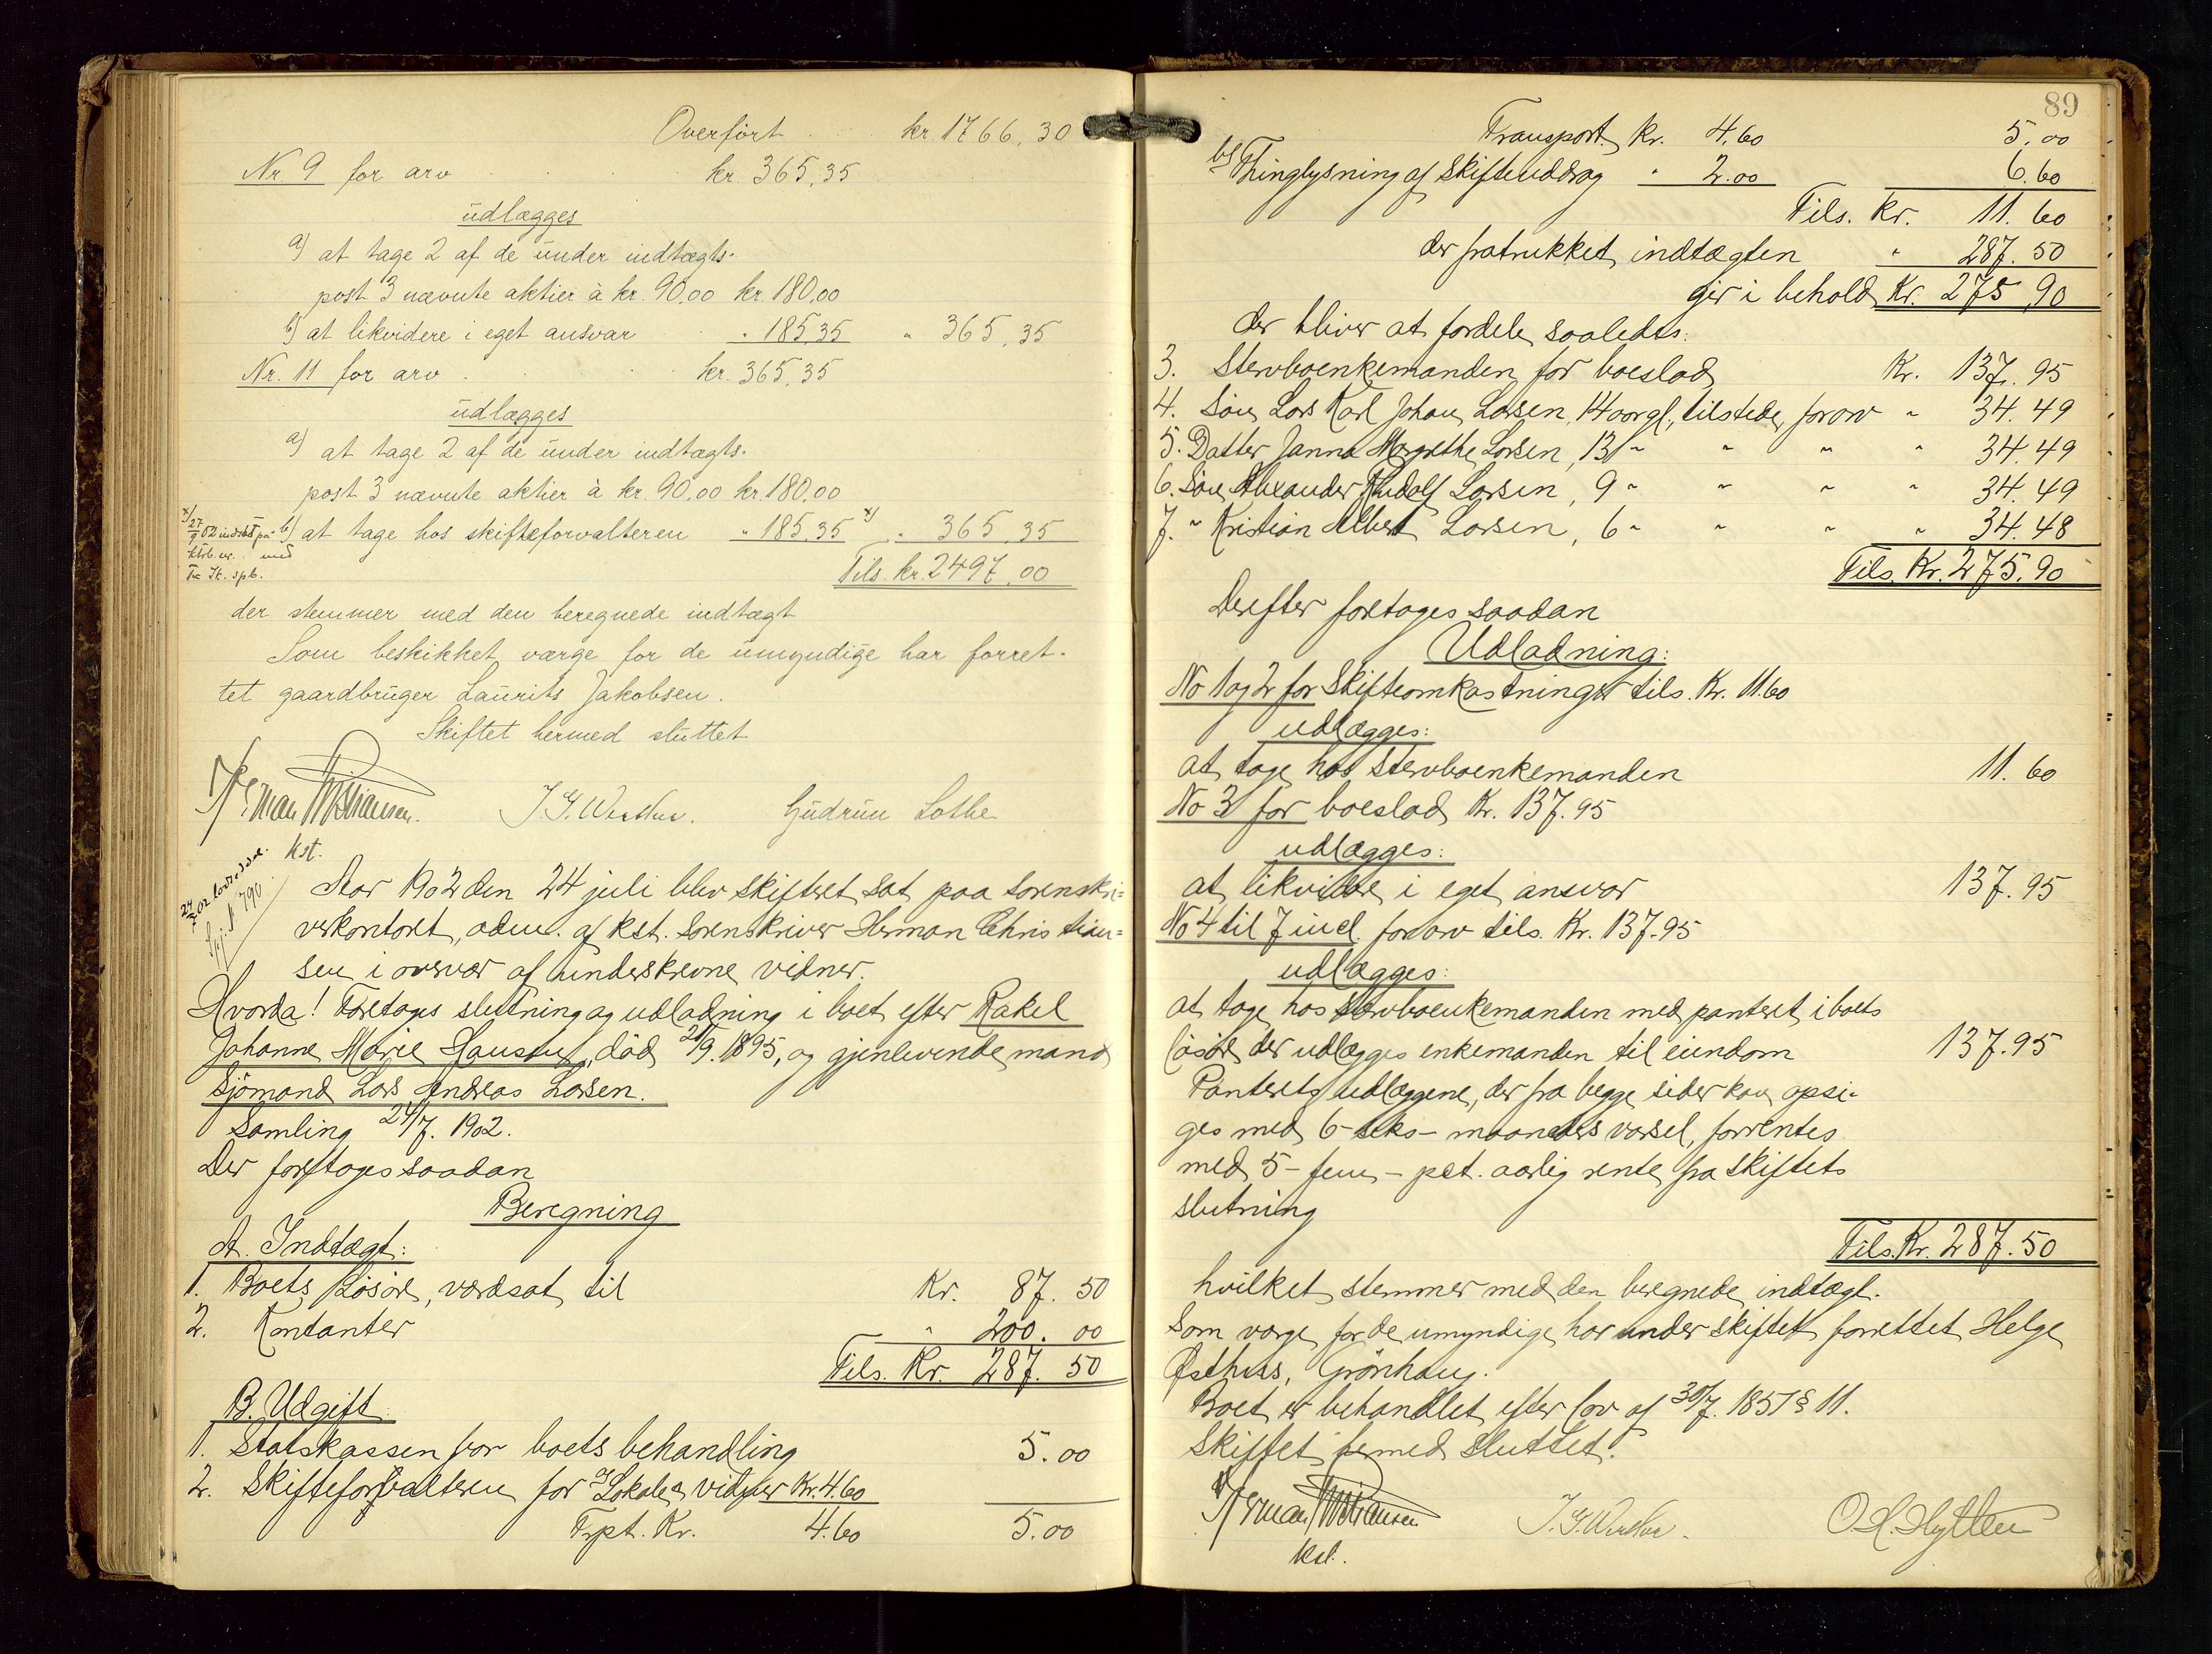 Overført kr. 1766,30
Nr. 9 for arv kr. 365,35
udlægges
a) at tage 2 af de under indtægts-
post 3 nævnte aktier à kr. 90,00 kr. 180,00
b) at likvidere i eget ansvar " 185,35 " 365,35
Nr. 11 for arv kr. 365,35
udlægges
a) at tage 2 af de under indtægts-
post 3 nævnte aktier à kr. 90,00 kr. 180,00
b) at tage hos skifteforvalteren " 185,35 x) " 365,35
x) 27/9 02 indsat paa
med
Tils. kr. 2497,00
der stemmer med den beregnede indtægt
Som beskikket værge for de umyndige har forret-
tet gaardbruger Laurits Jakobsen.
Skiftet hermed sluttet
Herman Christiansen. J. G. Werther. Gudrun Lothe
kst.
Aar 1902 den 24 juli blev skifteret sat paa sorenskri-
verkontoret, adm. af kst. sorenskriver Herman Christian-
sen i overvær af underskrevne vidner.
Hvorda! Foretages slutning og udlodning i boet efter Rakel
Johanne Marie Hansen, død 21/9. 1895, og gjenlevende mand
sjömand Lars Andreas Larsen.
Samling 24/7. 1902.
Der foretages saadan
Beregning
A. Indtægt:
1. Boets løsøre, værdsat til Kr. 87. 50
2. Kontanter " 200. 00
Tils. Kr. 287. 50
B. Udgift
1. Statskassen for boets behandling 5.00
2. Skifteforvalteren for a) Lokale & vidner Kr. 4.60
Trpt. Kr. 4.60 5.00
89
Transport. Kr. 4.60 5.00
b) Thinglysning af skifteuddrag " 2.00 6.60
Tils. Kr. 11. 60
der fratrukket indtægten " 287. 50
gir i behold Kr. 275,90
der bliver at fordele saaledes:
3. Stervboenkemanden for boeslod Kr. 137. 95
4. Søn Lars Karl Johan Larsen, 14 aar gl., tilstede, for arv " 34. 49
5. Datter Janna Margrethe Larsen, 13 " " " " 34. 49
6. Søn Alexander Rudolf Larsen, 9 " " " " 34. 49
7. " Kristian Albert Larsen, 6 " " " " 34. 48
Tils. Kr. 275,90
Derefter foretages saadan
Udlodning:
No 1 og 2 for skifteomkostninger tils. Kr. 11.60
udlægges:
at tage hos stervboenkemanden 11. 60
No 3 for boeslod Kr. 137.95
udlægges:
at likvidere i eget ansvar 137. 95
No 4 til 7 incl. for arv tils. Kr. 137.95
udlægges:
at tage hos stervboenkemanden med panteret i boets
løsøre der udlægges enkemanden til eiendom 137.95
Panteretsudlæggene, der fra begge sider kan opsi-
ges med 6 - seks - maaneders varsel, forrentes
med 5 - fem - pct. aarlig rente fra skiftets
slutning
Tils. Kr. 287.50
hvilket stemmer med den beregnede indtægt.
Som værge for de umyndige har under skiftet forrettet Helge
Østhus, Grönhaug.
Boet er behandlet efter lov af 30/7. 1851 § 11.
Skiftet hermed sluttet.
Herman Christiansen J. G. Werther. O. H. Hytten
kst.